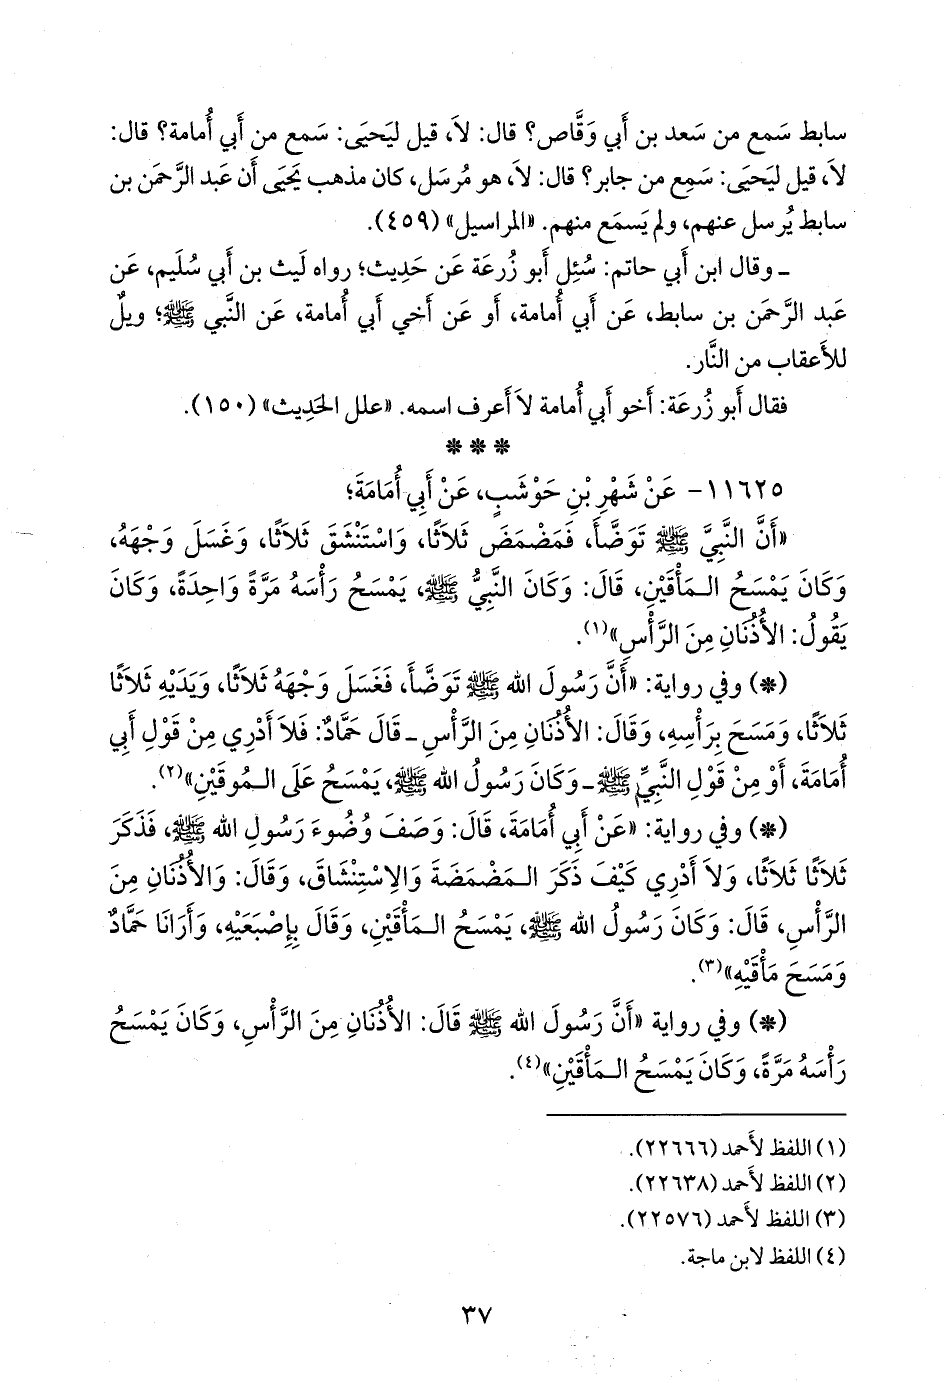 سابط سَمع من سَعد بن أَبي وَقَّاص؟ قال: لاَ، قيل ليَحيَى: سَمع من أَبي أُمامة؟ قال:
لاَ، قيل ليَحيَى: سَمِع من جابر؟ قال: لاَ، هو مُرسَل، كان مذهب يَحيَى أَن عَبد الرَّحمَن بن
سابط يُرسل عنهم، ولم يَسمَع منهم. «المراسيل» (٤٥٩).
ـ وقال ابن أَبي حاتم: سُئِل أَبو زُرعَة عَن حَدِيث؛ رواه لَيث بن أَبي سُليم، عَن
عَبد الرَّحمَن بن سابط، عَن أَبي أُمامة، أَو عَن أَخي أَبي أُمامة، عَن النَّبي ﷺ؛ ويلٌ
للأَعقاب من النَّار.
فقال أَبو زُرعَة: أَخو أَبي أُمامة لاَ أَعرف اسمه. «علل الحَدِيث» (١٥٠).
* * *
١١٦٢٥- عَنْ شَهْرِ بْنِ حَوْشَبٍ، عَنْ أَبِي أُمَامَةَ؛
«أَنَّ النَّبِيَّ ﷺ تَوَضَّأَ، فَمَضْمَضَ ثَلاَثًا، وَاسْتَنْشَقَ ثَلاَثًا، وَغَسَلَ وَجْهَهُ،
وَكَانَ يَمْسَحُ الـمَأْقَيْنِ، قَالَ: وَكَانَ النَّبِيُّ ﷺ، يَمْسَحُ رَأْسَهُ مَرَّةً وَاحِدَةً، وَكَانَ
يَقُولُ: الأُذُنَانِ مِنَ الرَّأْسِ»(١).
(*) وفي رواية: «أَنَّ رَسُولَ الله ﷺ تَوَضَّأَ، فَغَسَلَ وَجْهَهُ ثَلاَثًا، وَيَدَيْهِ ثَلاَثًا
ثَلاَثًا، وَمَسَحَ بِرَأْسِهِ، وَقَالَ: الأُذُنَانِ مِنَ الرَّأْسِ ـ قَالَ حَمَّادٌ: فَلاَ أَدْرِي مِنْ قَوْلِ أَبِي
أُمَامَةَ، أَوْ مِنْ قَوْلِ النَّبِيِّ ﷺ ـ وَكَانَ رَسُولُ الله ﷺ، يَمْسَحُ عَلَى الـمُوقَيْنِ»(٢).
(*) وفي رواية: «عَنْ أَبِي أُمَامَةَ، قَالَ: وَصَفَ وُضُوءَ رَسُولِ الله ﷺ، فَذَكَرَ
ثَلاَثًا ثَلاَثًا، وَلاَ أَدْرِي كَيْفَ ذَكَرَ الـمَضْمَضَةَ وَالِاسْتِنْشَاقَ، وَقَالَ: وَالأُذُنَانِ مِنَ
الرَّأْسِ، قَالَ: وَكَانَ رَسُولُ الله ﷺ، يَمْسَحُ الـمَأْقَيْنِ، وَقَالَ بِإِصْبَعَيْهِ، وَأَرَانَا حَمَّادٌ
وَمَسَحَ مَأْقَيْهِ»(٣).
(*) وفي رواية «أَنَّ رَسُولَ الله ﷺ قَالَ: الأُذُنَانِ مِنَ الرَّأْسِ، وَكَانَ يَمْسَحُ
رَأْسَهُ مَرَّةً، وَكَانَ يَمْسَحُ الـمَأْقَيْنِ»(٤).
(١) اللفظ لأَحمد (٢٢٦٦٦).
(٢) اللفظ لأَحمد (٢٢٦٣٨).
(٣) اللفظ لأَحمد (٢٢٥٧٦).
(٤) اللفظ لابن ماجة.
٣٧